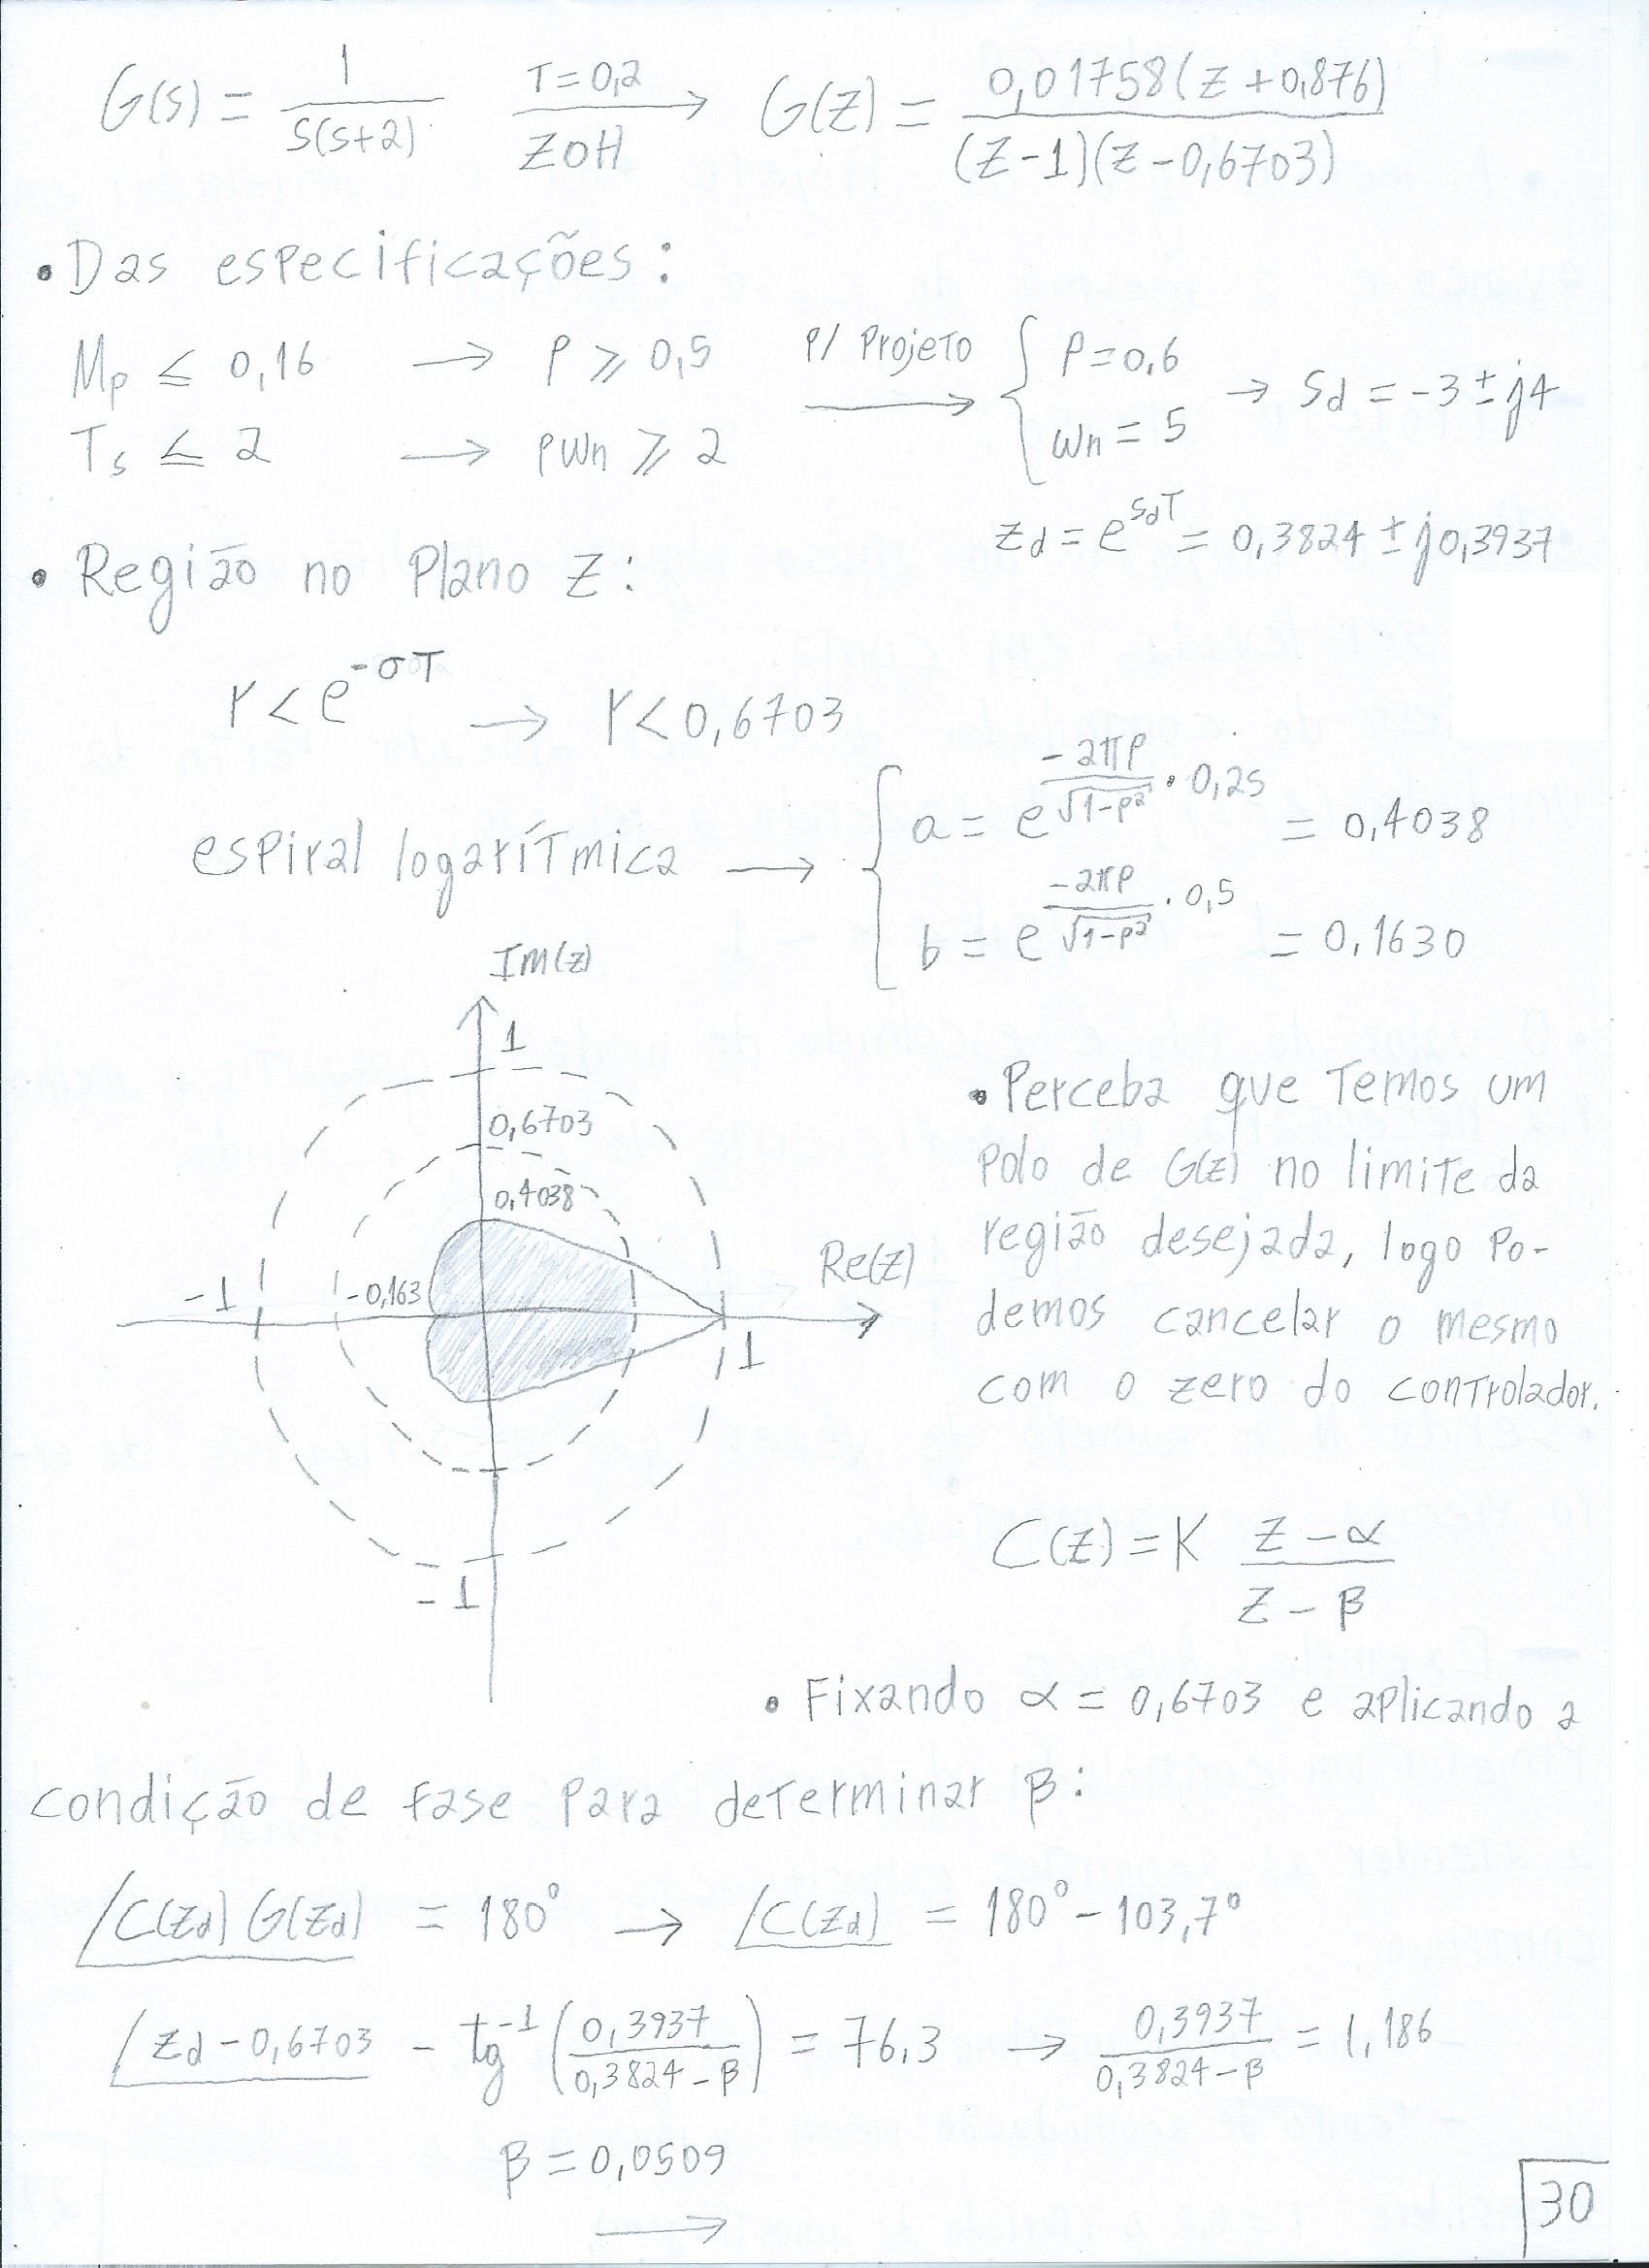 G(s) = 1 / s(s+2)   T=0,2 / ZOH →   G(z) = 0,01758(z+0,876) / (z-1)(z-0,6703)
• Das especificações:
Mp ≤ 0,16 → ρ ≥ 0,5   p/ Projeto → { ρ=0,6   → Sd = -3 ± j4
Ts ≤ 2 → ρWn ≥ 2   Wn = 5
zd = e^{SdT} = 0,3824 ± j0,3937
• Região no Plano Z:
r < e^{-σT} → r < 0,6703
espiral logarítmica → { a = e^{-2πρ/√(1-ρ²) · 0,25} = 0,4038
b = e^{-2πρ/√(1-ρ²) · 0,5} = 0,1630
Im(z)
1
0,6703
0,4038
Re(z)
-1
-0,163
1
-1
• Perceba que Temos um
Polo de G(z) no limite da
região desejada, logo Po-
demos cancelar o mesmo
com o zero do controlador.
C(z) = K z-α / z-β
• Fixando α = 0,6703 e aplicando a
condição de fase Para determinar β:
∠C(zd) G(zd) = 180° → ∠C(zd) = 180° - 103,7°
∠zd - 0,6703 - tg⁻¹(0,3937 / 0,3824-β) = 76,3 → 0,3937 / 0,3824-β = 1,186
β = 0,0509
→
30